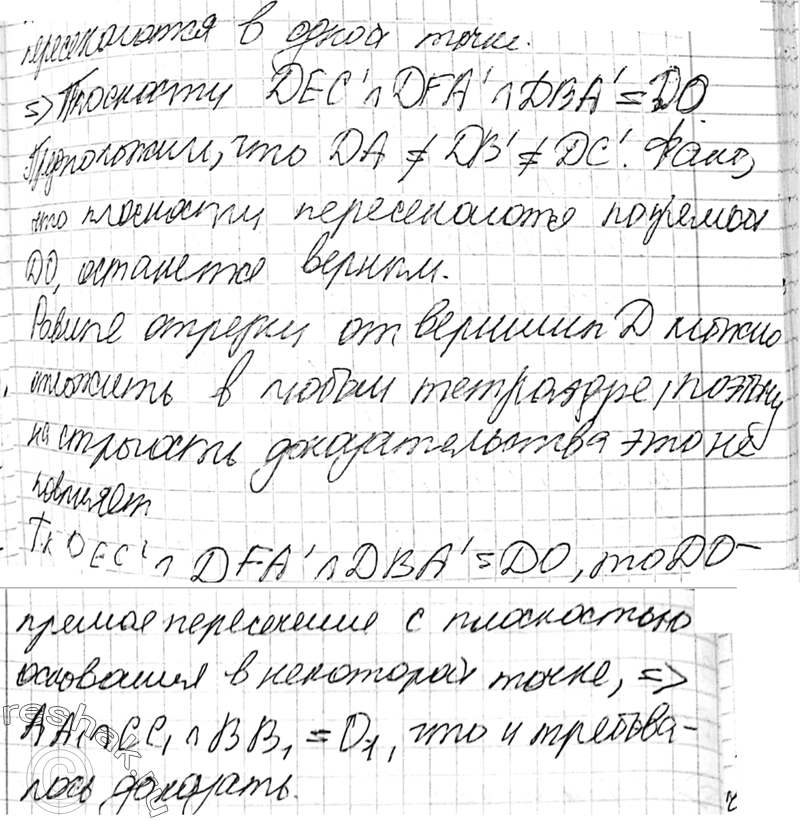 пересекаются в одной точке.
=> Плоскости DEC' ∩ DFA' ∩ DBA' = DO
Предположим, что DA ≠ DB' ≠ DC'. Факт,
что плоскости пересекаются по прямой
DO, останется верным.
Равные отрезки от вершины D можно
отложить в любом тетраэдре, поэтому
на строгость доказательства это не
повлияет
Тк DEC' ∩ DFA' ∩ DBA' = DO, то DO –
прямая пересечения с плоскостью
основания в некоторой точке, =>
AA₁ ∩ CC₁ ∩ BB₁ = O₁, что и требова-
лось доказать.